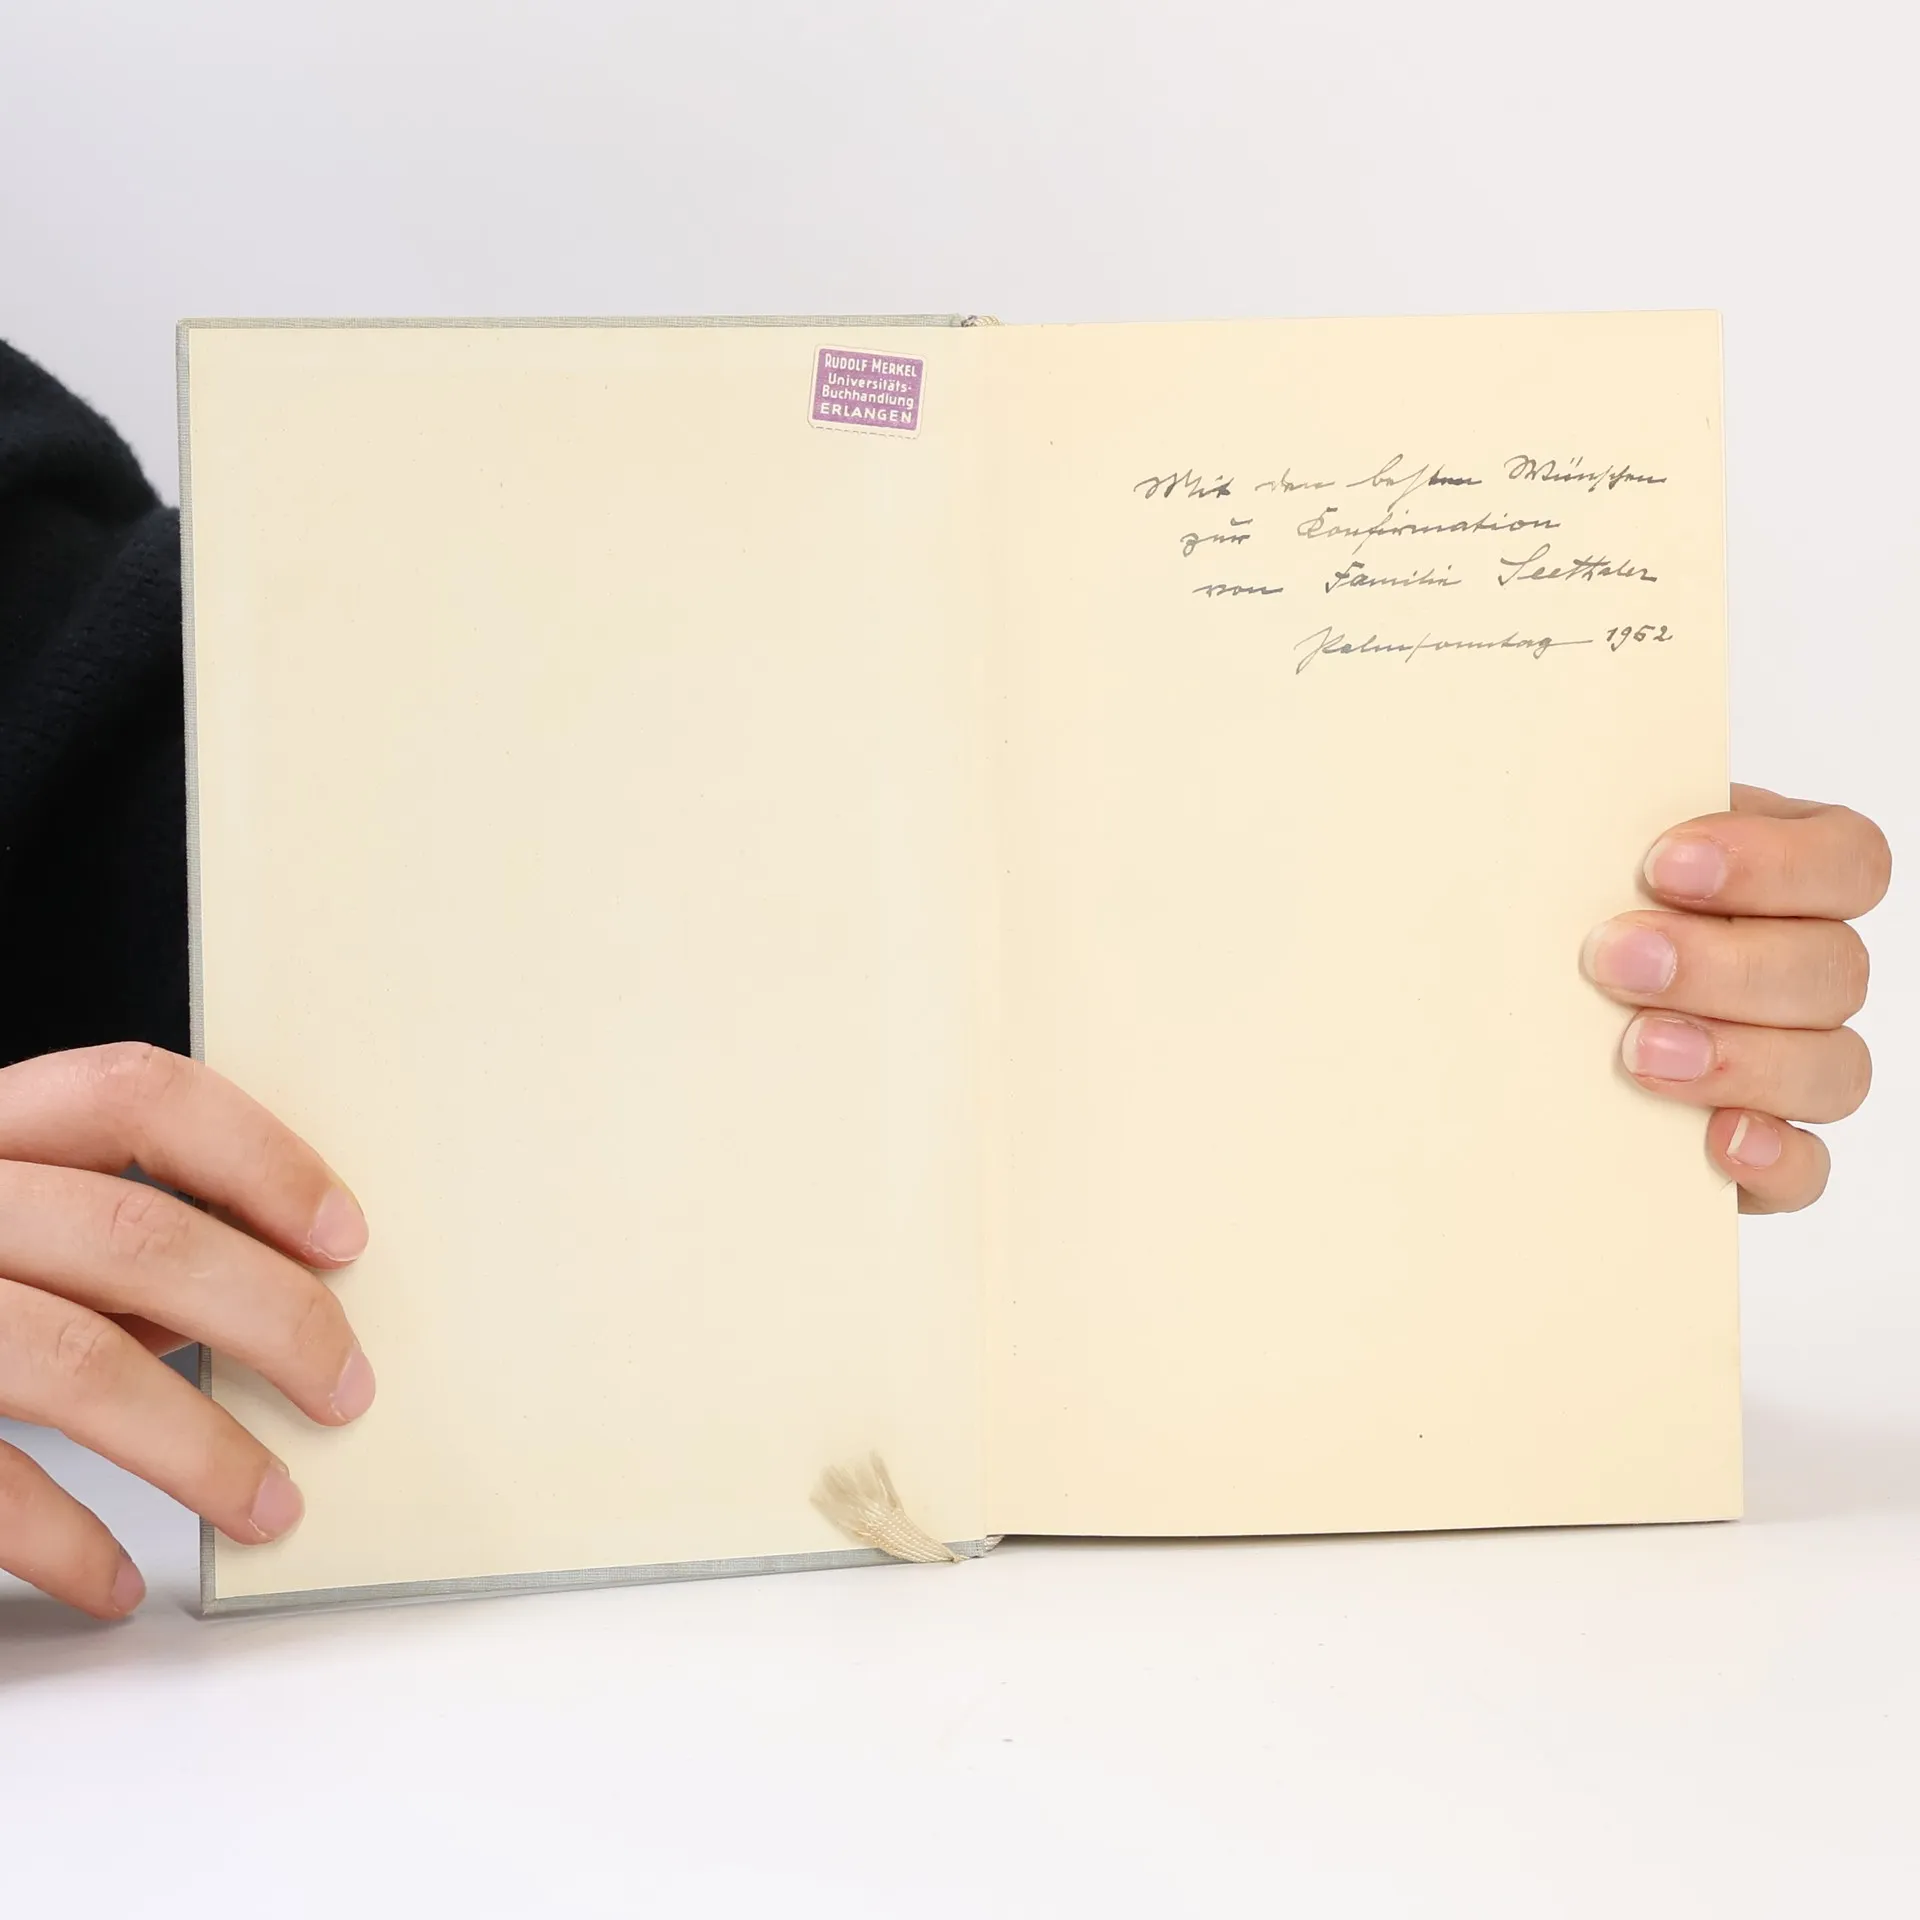 RUDOLF MERKEL
Universitäts-
Buchhandlung
ERLANGEN
Mit den besten Wünschen
zur Konfirmation
von Familie Seethaler
Palmsonntag 1952